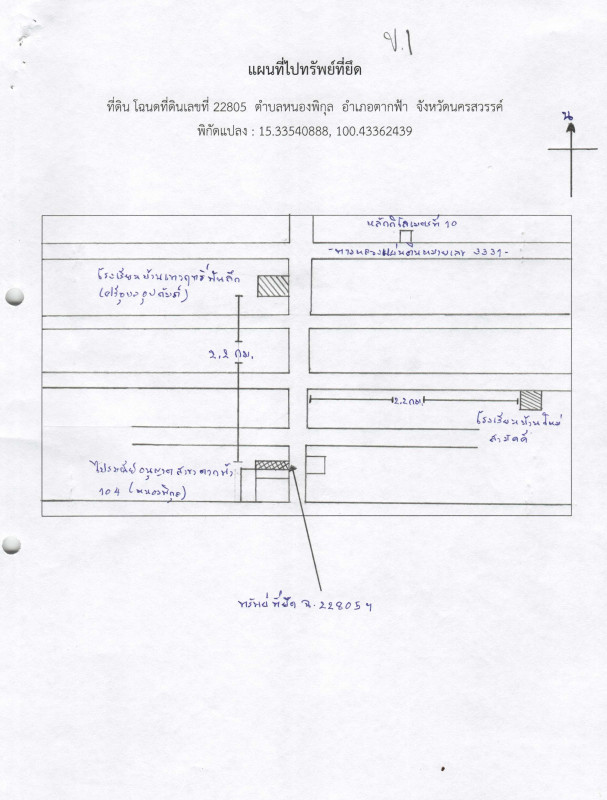 ข.1
แผนที่ไปทรัพย์ที่ยึด
ที่ดิน โฉนดที่ดินเลขที่ 22805 ตำบลหนองพิกุล อำเภอตากฟ้า จังหวัดนครสวรรค์
พิกัดแปลง : 15.33540888, 100.43362439
น
หลักกิโลเมตรที่ 10
-ทางหลวงแผ่นดินหมายเลข 3331-
โรงเรียนบ้าน
2.2 กม.
2.2 กม.
โรงเรียนบ้านใหม่
สามัคคี
ไปรษณีย์อนุญาต สาขาตากฟ้า
104 (หนองพิกุล)
ทรัพย์ที่ยึด ฉ.22805ฯ